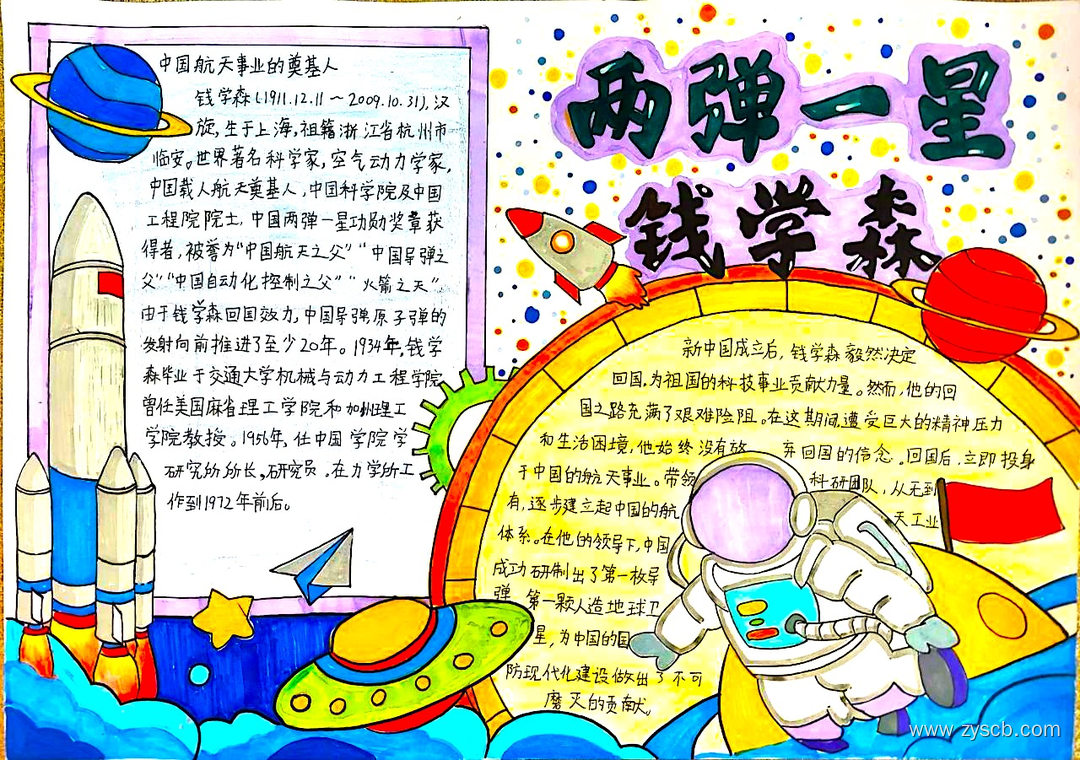 两弹一星
钱学森
中国航天事业的奠基人
钱学森(1911.12.11～2009.10.31),汉
族,生于上海,祖籍浙江省杭州市
临安。世界著名科学家,空气动力学家,
中国载人航天奠基人,中国科学院及中国
工程院院士,中国两弹一星功勋奖章获
得者,被誉为"中国航天之父""中国导弹之
父""中国自动化控制之父""火箭之天".
由于钱学森回国效力,中国导弹原子弹的
发射向前推进了至少20年。1934年,钱学
森毕业于交通大学机械与动力工程学院
曾任美国麻省理工学院和加州理工
学院教授。1956年,任中国学院学
研究所所长,研究员.在力学所工
作到1972年前后。
新中国成立后,钱学森毅然决定
回国,为祖国的科技事业贡献力量。然而,他的回
国之路充满了艰难险阻。在这期间,遭受巨大的精神压力
和生活困境,他始终没有放弃回国的信念。回国后,立即投身
于中国的航天事业。带领科研团队,从无到
有,逐步建立起中国的航天工业
体系。在他的领导下,中国
成功研制出了第一枚导
弹、第一颗人造地球卫
星,为中国的国
防现代化建设做出了不可
磨灭的贡献。
www.zyscb.com